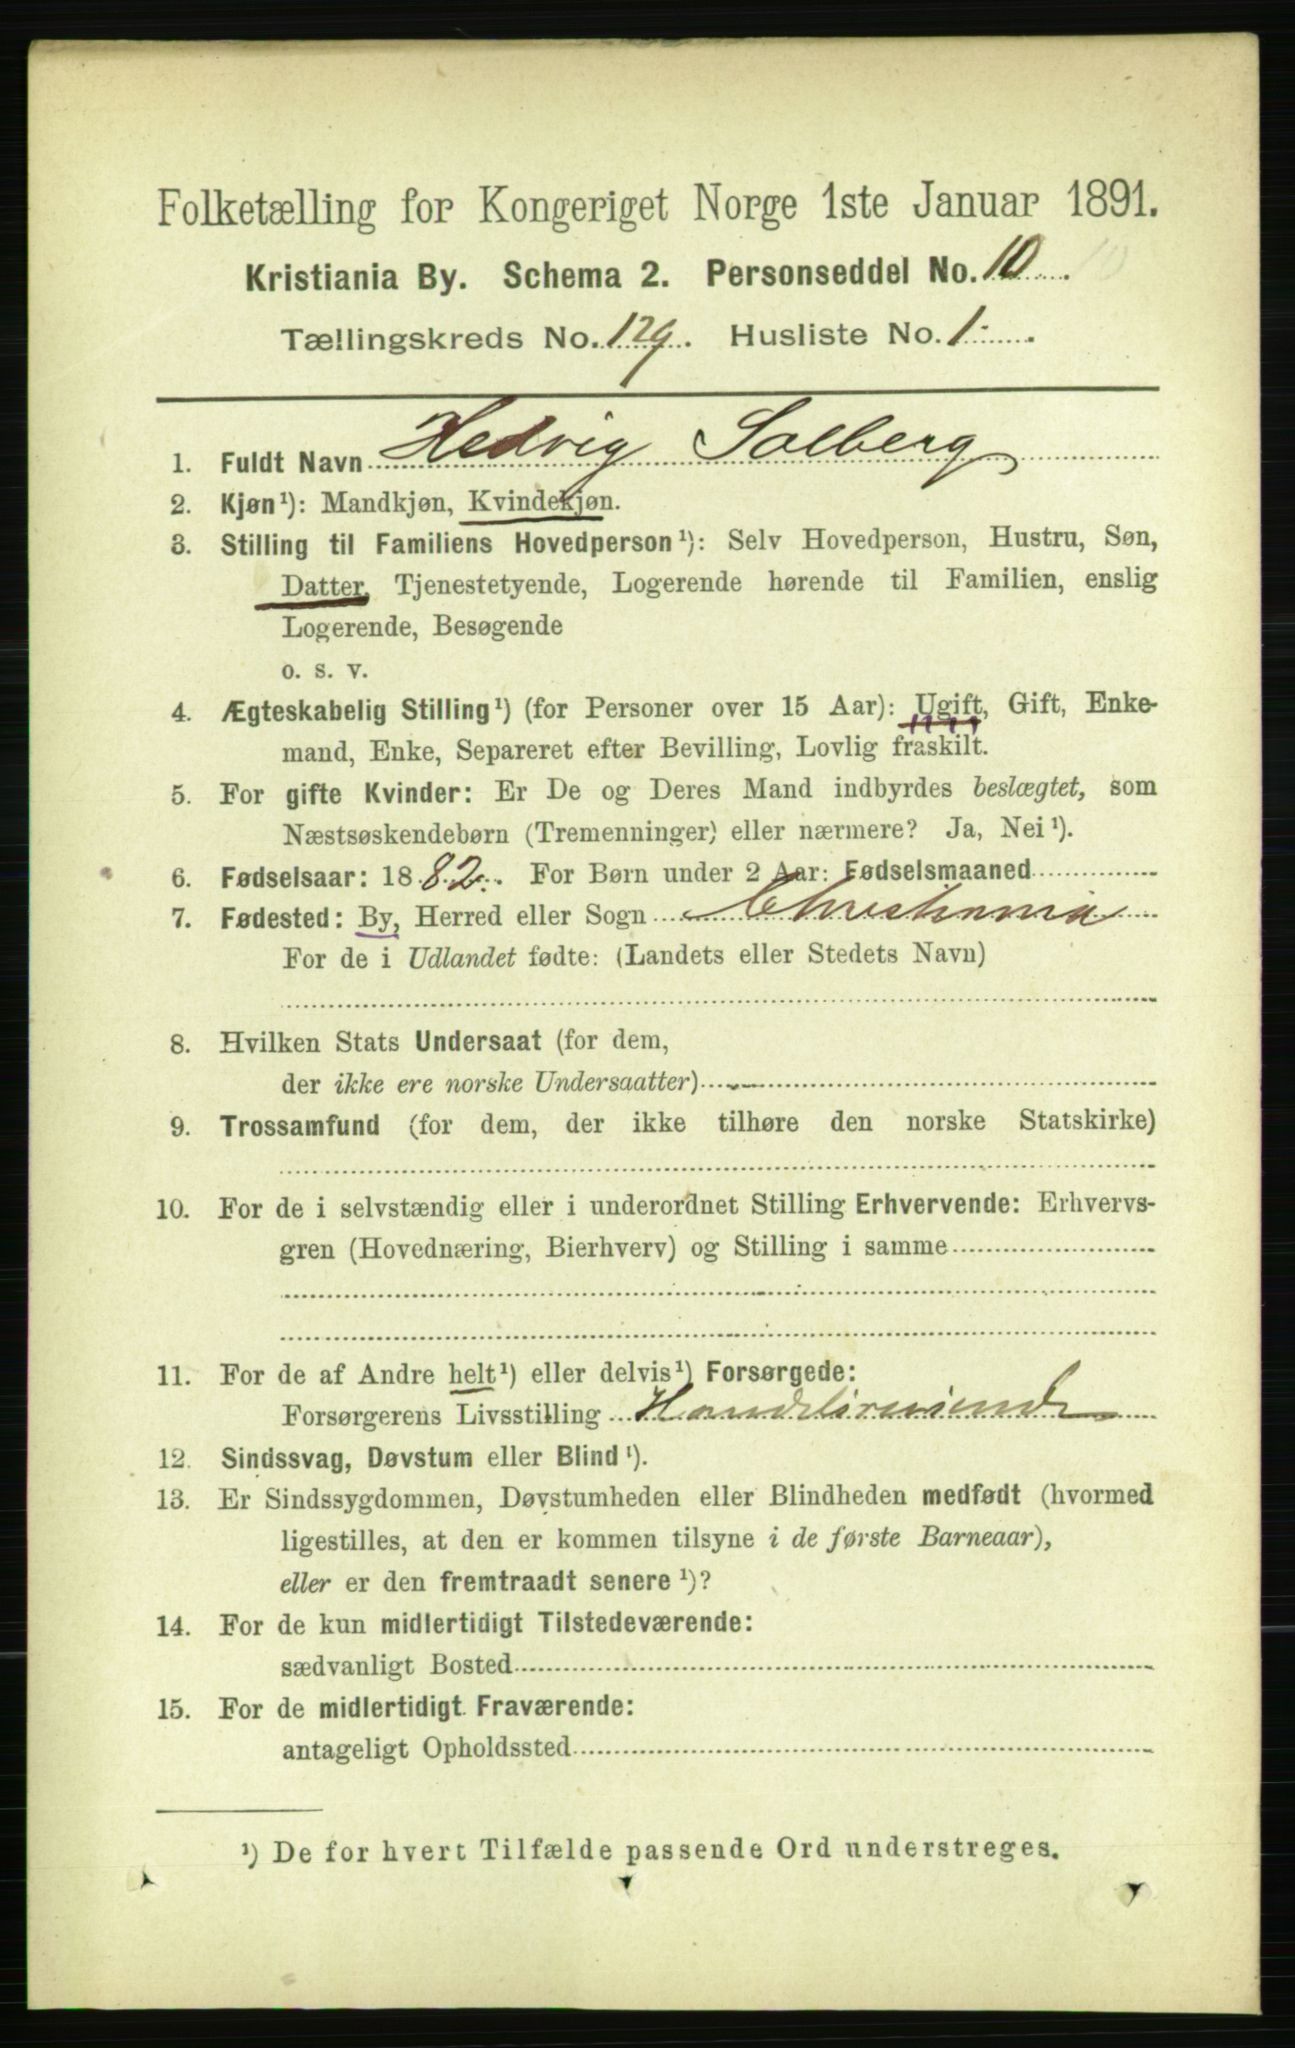 Folketælling for Kongeriget Norge 1ste Januar 1891.
Kristiania By. Schema 2. Personseddel No. 10. 10
Tællingskreds No. 129. Husliste No. 1.
1. Fuldt Navn Hedvig Solberg
2. Kjøn¹): Mandkjøn, Kvindekjøn.
3. Stilling til Familiens Hovedperson¹): Selv Hovedperson, Hustru, Søn,
Datter, Tjenestetyende, Logerende hørende til Familien, enslig
Logerende, Besøgende
o. s. v.
4. Ægteskabelig Stilling¹) (for Personer over 15 Aar): Ugift, Gift, Enke-
mand, Enke, Separeret efter Bevilling, Lovlig fraskilt.
5. For gifte Kvinder: Er De og Deres Mand indbyrdes beslægtet, som
Næstsøskendebørn (Tremenninger) eller nærmere? Ja, Nei¹).
6. Fødselsaar: 1882. For Børn under 2 Aar: Fødselsmaaned
7. Fødested: By, Herred eller Sogn Christiania
For de i Udlandet fødte: (Landets eller Stedets Navn)
8. Hvilken Stats Undersaat (for dem,
der ikke ere norske Undersaatter)
9. Trossamfund (for dem, der ikke tilhøre den norske Statskirke)
10. For de i selvstændig eller i underordnet Stilling Erhvervende: Erhvervs-
gren (Hovednæring, Bierhverv) og Stilling i samme
11. For de af Andre helt¹) eller delvis¹) Forsørgede:
Forsørgerens Livsstilling
12. Sindssvag, Døvstum eller Blind¹).
13. Er Sindssygdommen, Døvstumheden eller Blindheden medfødt (hvormed
ligestilles, at den er kommen tilsyne i de første Barneaar),
eller er den fremtraadt senere¹)?
14. For de kun midlertidigt Tilstedeværende:
sædvanligt Bosted
15. For de midlertidigt Fraværende:
antageligt Opholdssted
¹) De for hvert Tilfælde passende Ord understreges.